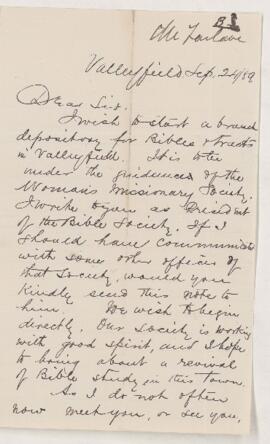 BS
Valleyfield Sep. 24/89
Dear Sir.
I wish to start a branch
depository for Bibles & tracts
in Valleyfield. It is to be
under the guidance of the
Woman's Missionary Society.
I write to you as President
of the Bible Society. If I
should have communicated
with some other officer of
that Society, would you
kindly send this note to
him. We wish to begin
directly. Our Society is working
with good spirit, and I hope
to bring about a revival
of Bible study in this town.
As I do not often
now meet you, or see you,